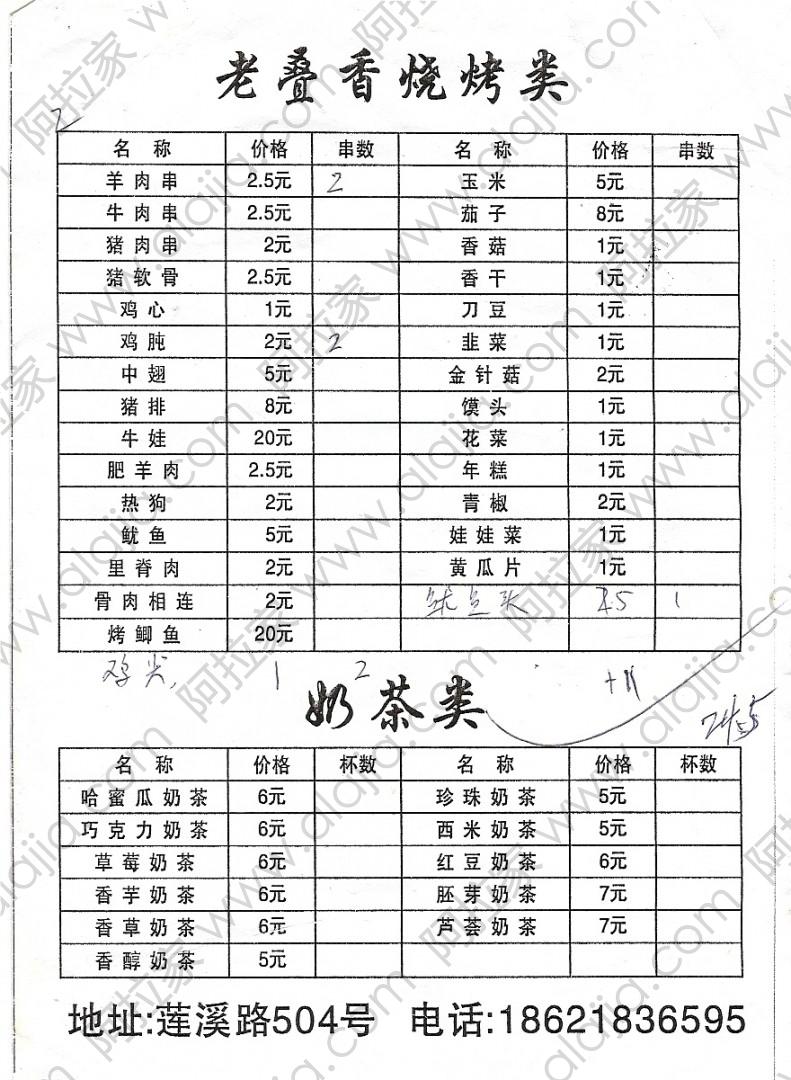 老叠香烧烤类
2
名称 价格 串数 名称 价格 串数
羊肉串 2.5元 2 玉米 5元
牛肉串 2.5元 茄子 8元
猪肉串 2元 香菇 1元
猪软骨 2.5元 香干 1元
鸡心 1元 刀豆 1元
鸡肫 2元 2 韭菜 1元
中翅 5元 金针菇 2元
猪排 8元 馍头 1元
牛娃 20元 花菜 1元
肥羊肉 2.5元 年糕 1元
热狗 2元 青椒 2元
鱿鱼 5元 娃娃菜 1元
里脊肉 2元 黄瓜片 1元
骨肉相连 2元 1
烤鲫鱼 20元
鸡尖 1 2
奶茶类
名称 价格 杯数 名称 价格 杯数
哈蜜瓜奶茶 6元 珍珠奶茶 5元
巧克力奶茶 6元 西米奶茶 5元
草莓奶茶 6元 红豆奶茶 6元
香芋奶茶 6元 胚芽奶茶 7元
香草奶茶 6元 芦荟奶茶 7元
香醇奶茶 5元
地址:莲溪路504号 电话:18621836595
阿拉家 www.alajia.com